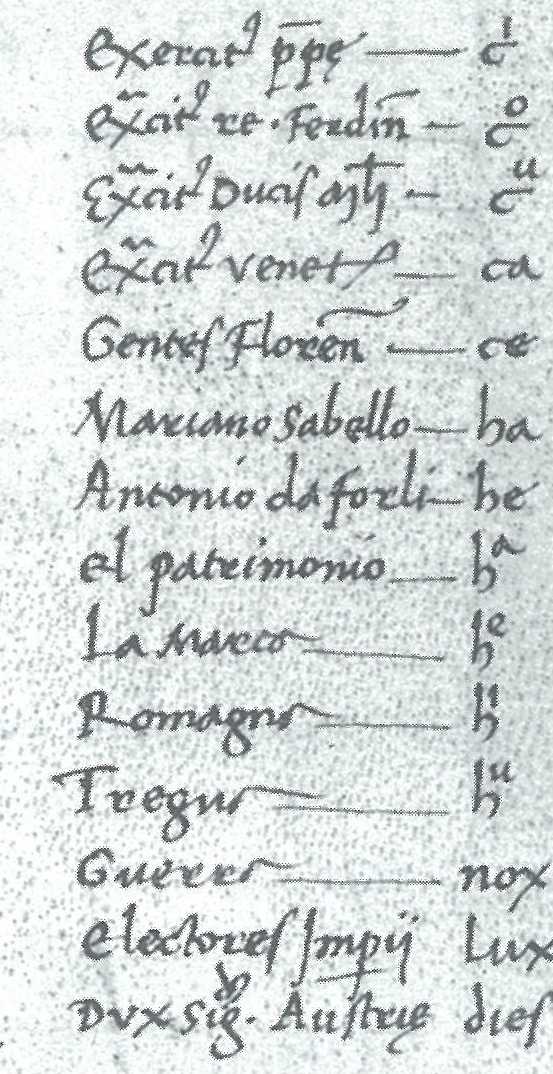 Exercit⁹ p̄pę — cⁱ
ex̃cit⁹ re. Ferdin̄ — cᵒ
Ex̃cit⁹ Ducis mł̄i — cᵘ
ex̃cit⁹ venet — ca
Gentes Floren̄ — ce
Mariano Sabello — ha
Antonio da forli — he
el patrimonio — hᵃ
La Marca — hᵉ
Romagna — hⁱ
Tregua — hᵘ
Guerra — nox
electores Impij Lux
Dux Sig. Austrie dies